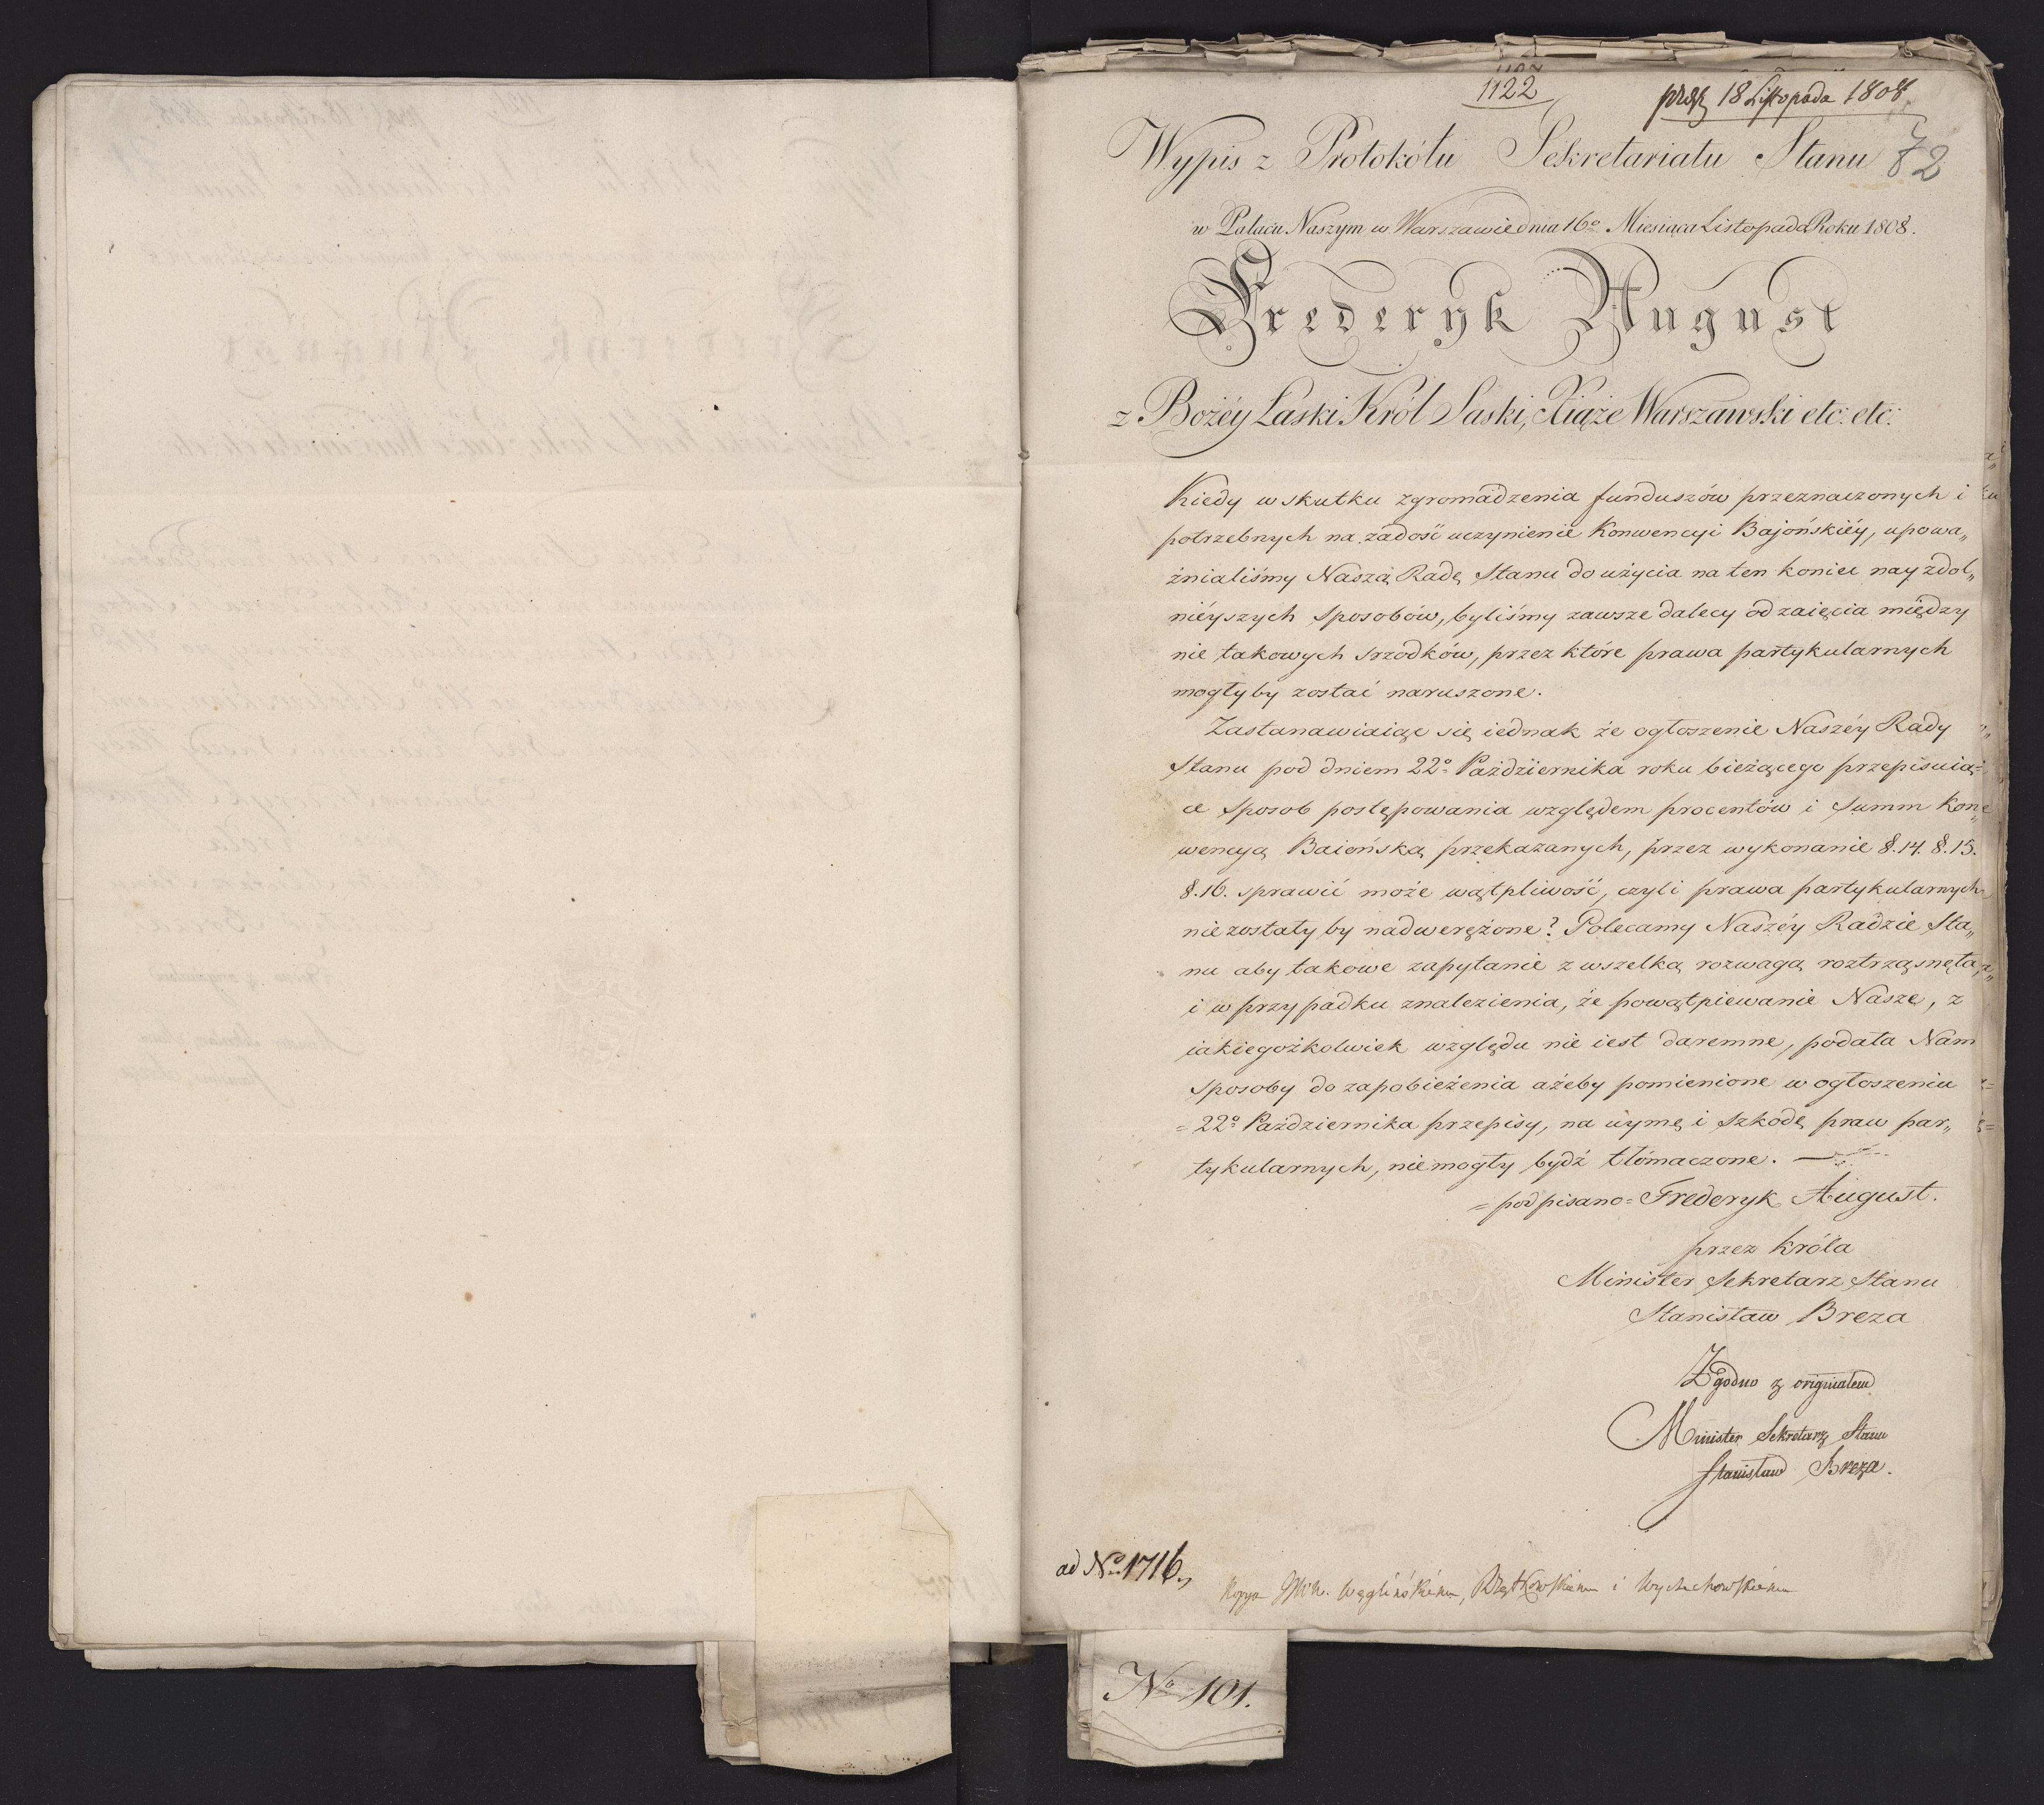 1122
prez 18 Listopada 1808
Wypis z Protokółu Sekretariatu Stanu
72
w Pałacu Naszym w Warszawie dnia 16º Miesiąca Listopada Roku 1808.
Frederyk August
z Bożéy Łaski Król Saski, Xiąże Warszawski etc: etc:
Kiedy w skutku zgromadzenia funduszów przeznaczonych i
potrzebnych na zadość uczynienie Konwencyi Bajońskiéy, upowa„
żnialiśmy Naszą Radę Stanu do użycia na ten koniec nayzdol„
niéyszych sposobów, byliśmy zawsze dalecy od zaięcia między
nie takowych srzodków, przez które prawa partykularnych
mogłyby zostać naruszone.
Zastanawiaiąc się iednak że ogłoszenie Naszéy Rady
Stanu pod dniem 22º Pazdziernika roku bieżącego przepisuią=
ce sposob postępowania względem procentów i Summ Kon„
wencyą Baiońską przekazanych, przez wykonanie §.14. §.15.
§.16. sprawić może wątpliwość, czyli prawa partykularnych
nie zostały by nadwerężone? Polecamy Naszéy Radzie Sta„
nu aby takowe zapytanie z wszelką rozwagą roztrząsnęła,
i w przypadku znalezienia, że powątpiewanie Nasze, z
iakiegożkolwiek względu nie iest daremne, podała Nam
sposoby do zapobieżenia ażeby pomienione w ogłoszeniu
=22º Pazdziernika przepisy, na uymę i szkodę praw par„
tykularnych, nie mogły bydź tłómaczone.
=podpisano= Frederyk August.
przez Króla
Minister Sekretarz Stanu
Stanisław Breza
Zgodno z originałem
Minister Sekretarz Stanu
Stanisław Breza.
ad Nº 1716.
Kopya JWW. Węglińskiemu, i Wyczechowskiemu
Nº 101.